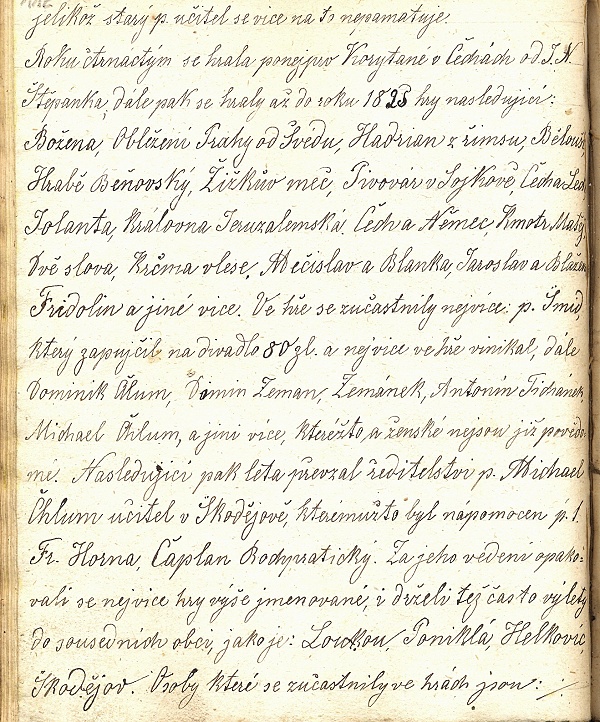 jelikož starý p. učitel se vice na to nepamatuje.
Roku čtrnáctým se hrála ponejprv Korytané v Čechách od J. N.
Štěpánka, dále pak se hrály až do roku 1825 hry nasledující:
Božena, Obležení Prahy od Švédu, Hadrian z římsu, Bělouši,
Hrabě Beňovský, Žižkův meč, Pivovár v Sojkově, Čech a Lech
Jolanta, Královna Jeruzalemská, Čech a Němec, Kmotr Matěj,
Dvě slova, Krčma v lese, Mečislav a Blanka, Jaroslav a Blažena
Fridolin a jiné vice. Ve hře se zučastnily nejvice: p. Šmid
který zapujčil na divadlo 80 zl. a nejvice ve hře vinikal, dále
Dominik Člum, Domin Zeman, Zemánek, Antonín Tichánek,
Michael Čhlum, a jini více, kteréžto, a ženské nejsou již povědo-
mé. Nasledující pak léta převzal ředitelství p. Michael
Čhlum učitel v Škodějově, kterémužto byl nápomocen p. t.
Fr. Horna, Čaplan Rodpratický. Za jeho vedení opako-
vali se nejvice hry výše jmenované, i drželi též často výlety
do sousedních obcí, jako je: Loukou, Poniklá, Helkovic
Škodějov. Osoby které se zučastnily ve hrách jsou: